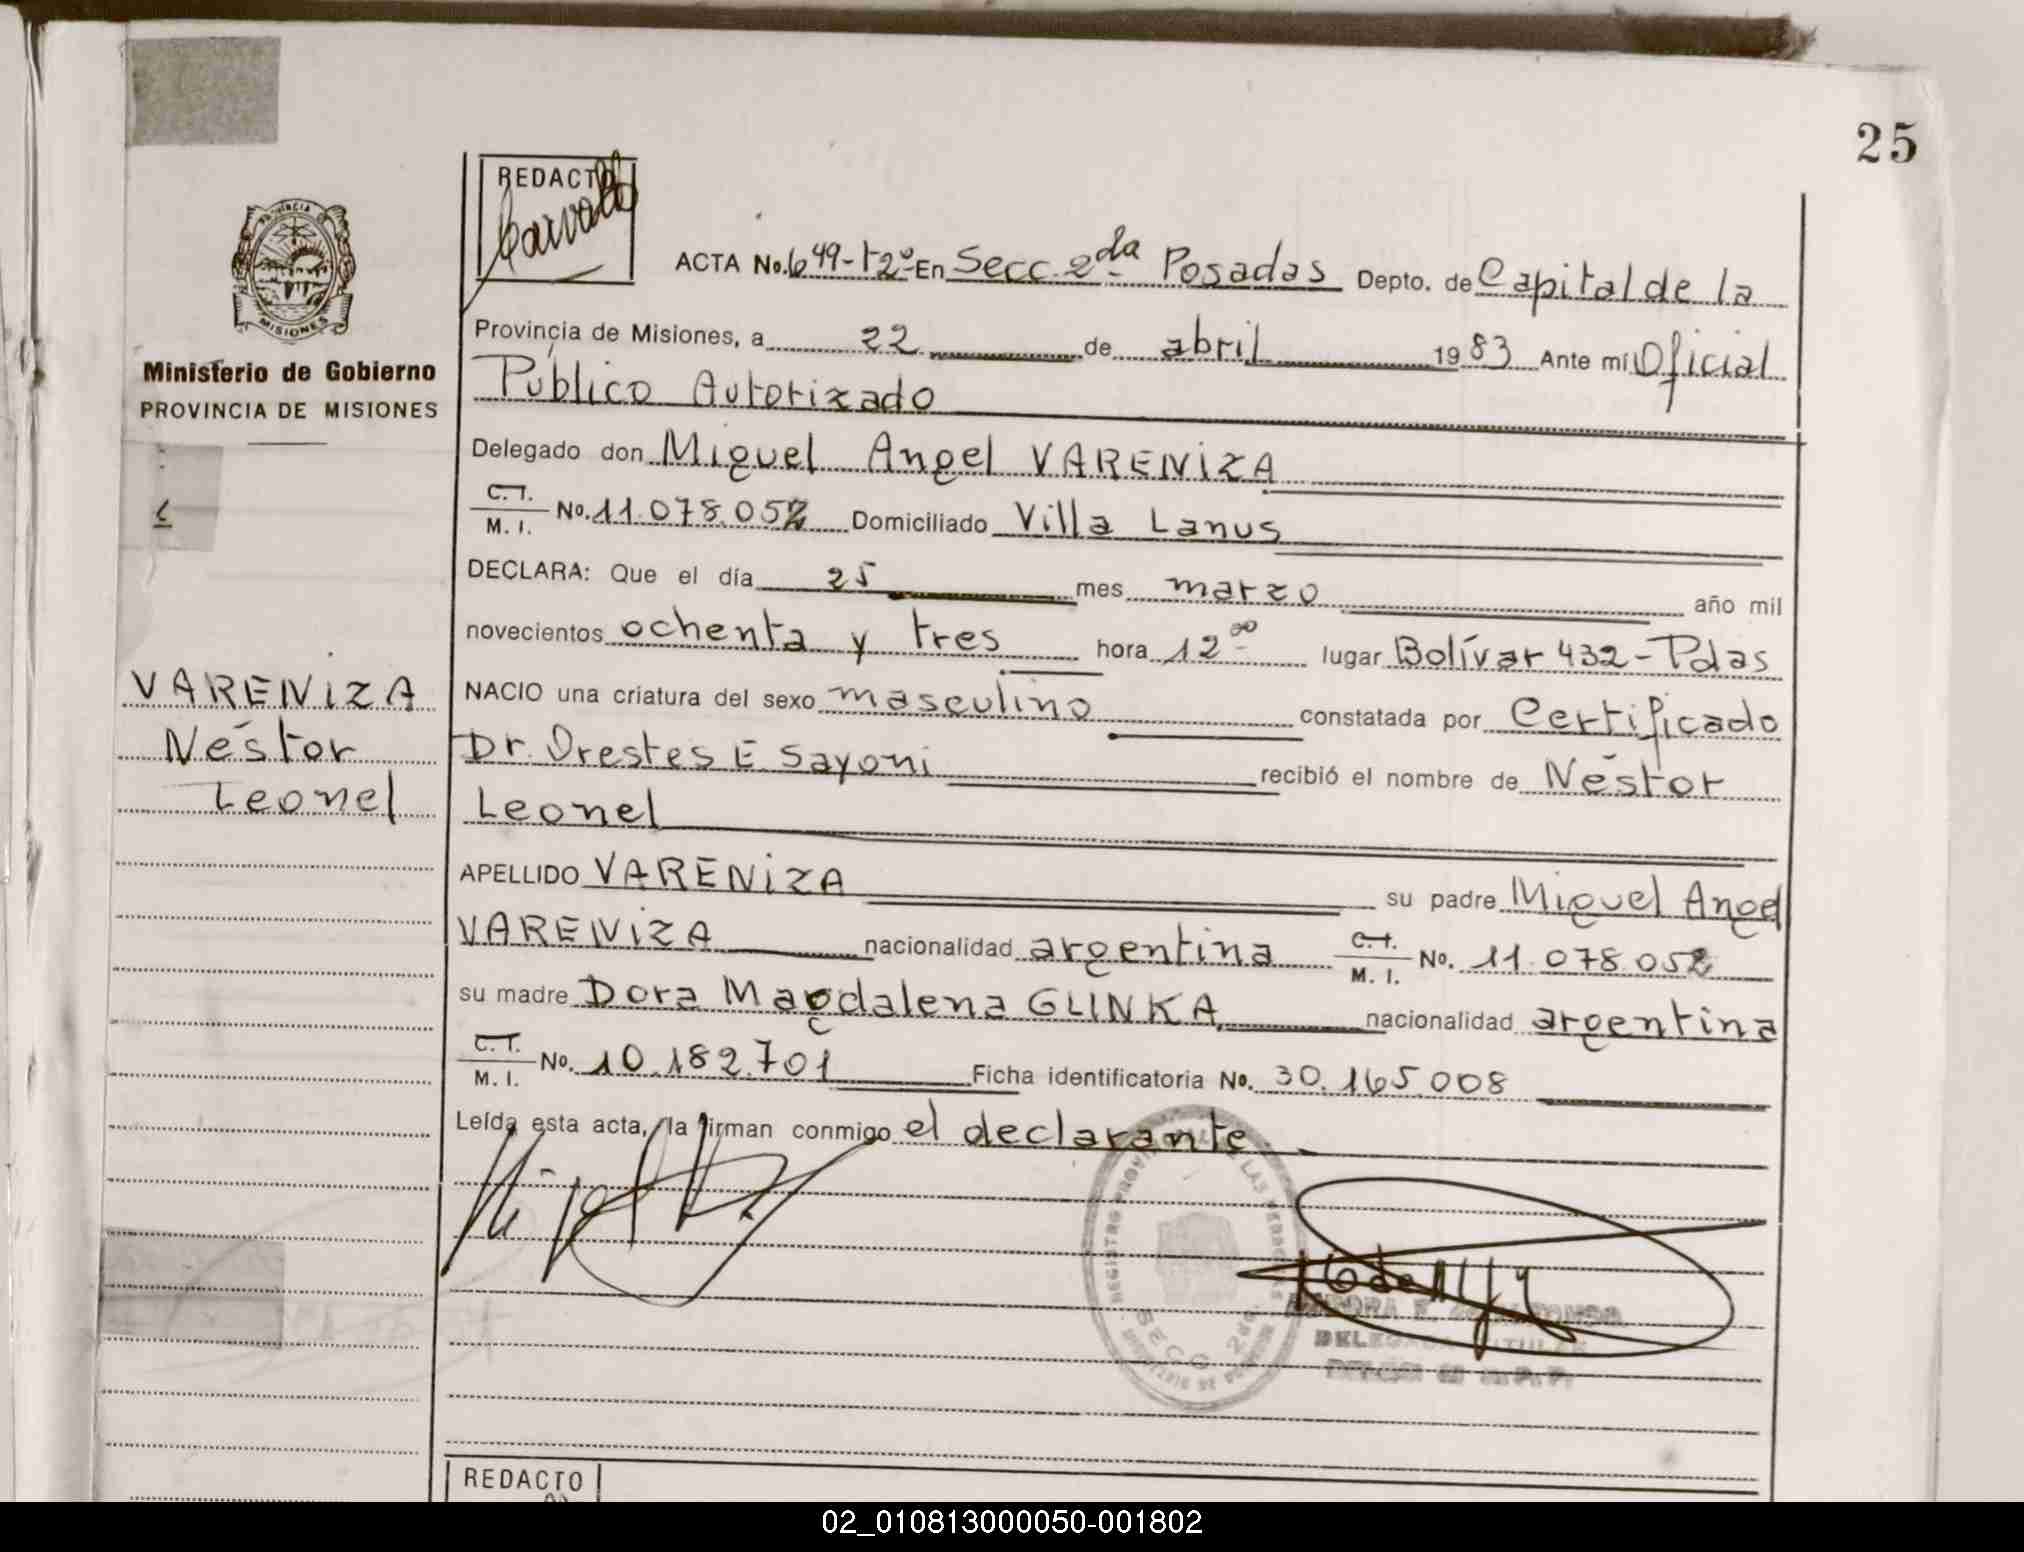 25
REDACTO
Carvallo
ACTA No. 649-t2º- En Secc. 2da Posadas Depto. de Capital de la
Provincia de Misiones, a 22 de abril 1983 Ante mí Oficial
Público Autorizado
PROVINCIA
MISIONES
Ministerio de Gobierno
PROVINCIA DE MISIONES
Delegado don Miguel Angel VARENIZA
C.I. M. I. No. 11.078.052 Domiciliado Villa Lanus
DECLARA: Que el día 25 mes marzo año mil
novecientos ochenta y tres hora 12 00 lugar Bolívar 432-Pdas
NACIO una criatura del sexo masculino constatada por Certificado
Dr. Orestes E Sayoni recibió el nombre de Néstor
Leonel
VARENIZA
Néstor
Leonel
APELLIDO VARENIZA su padre Miguel Angel
VARENIZA nacionalidad argentina C.I. M. I. No. 11.078.052
su madre Dora Magdalena GLINKA nacionalidad argentina
C.I. M. I. No. 10.182.701 Ficha identificatoria No. 30.165.008
Leída esta acta, la firman conmigo el declarante
SECC 2da.
REDACTO
02_010813000050-001802